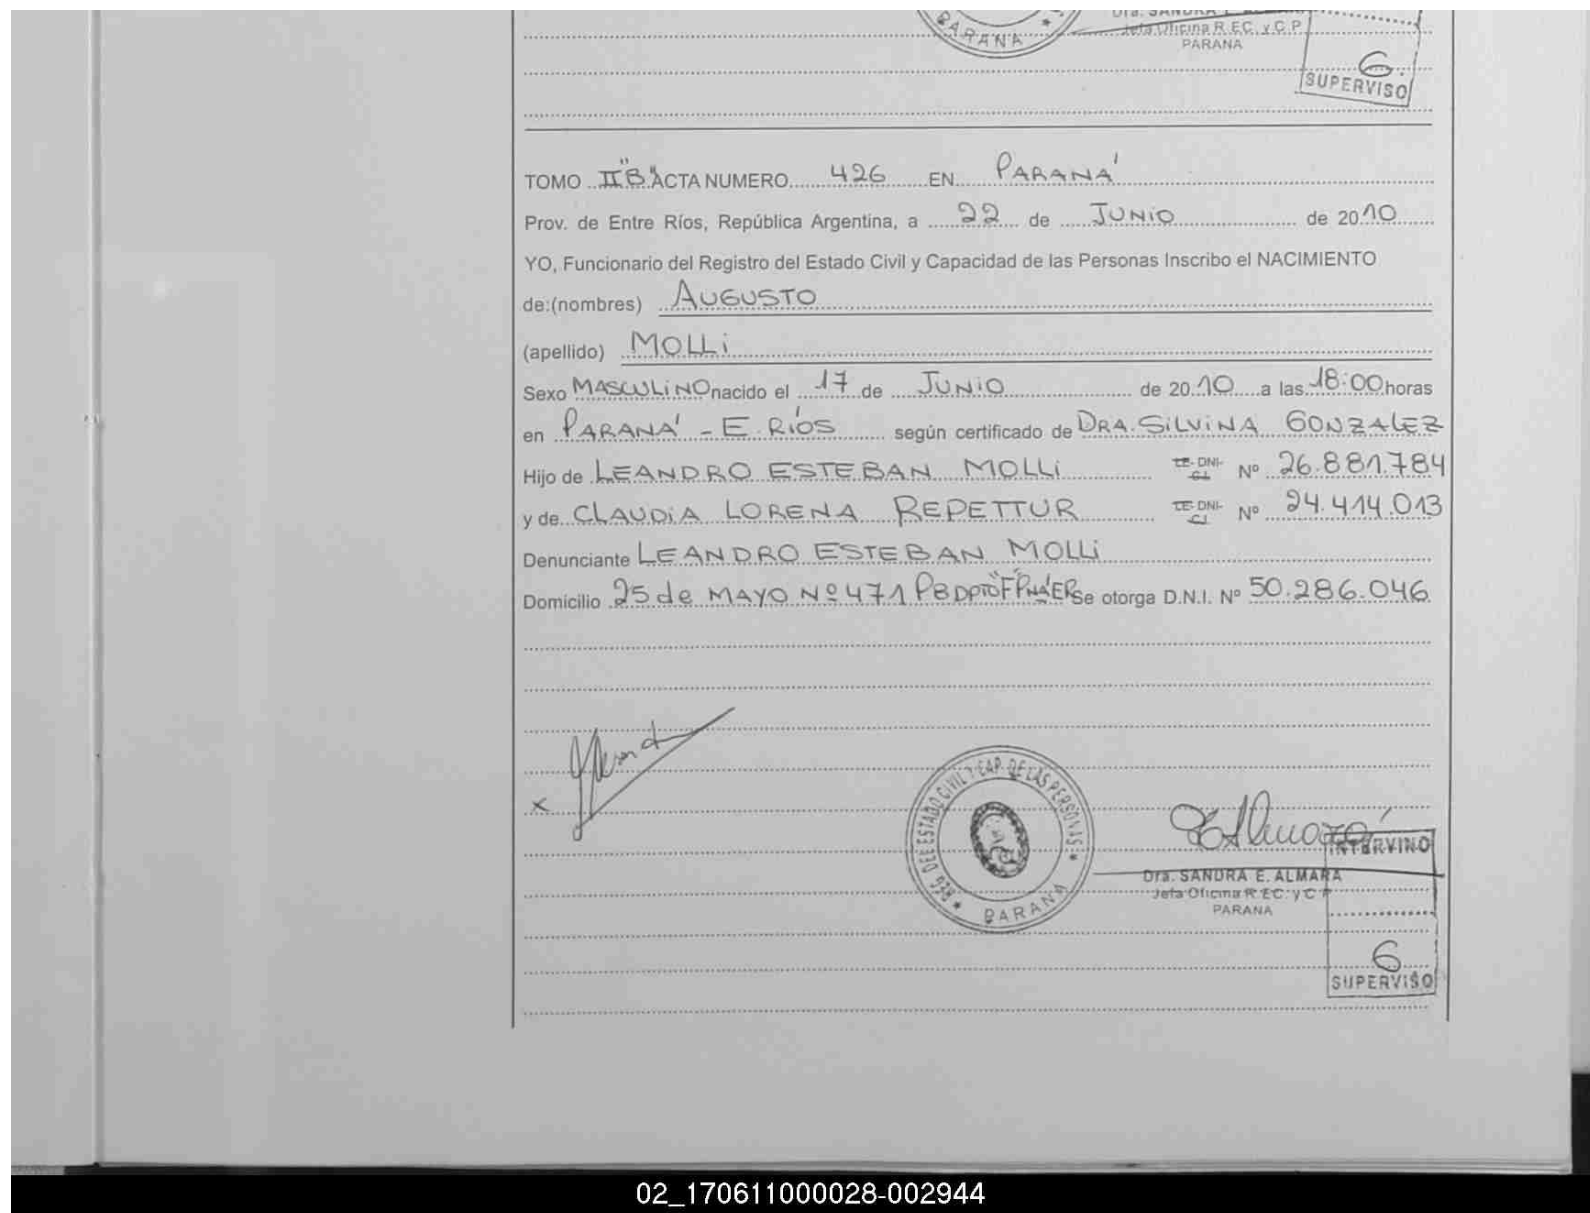 PARANA *
Dra. SANDRA E. ALMARA
Jefa Oficina R.EC. y C.P.
PARANA
6.
SUPERVISO
TOMO II "B" ACTA NUMERO 426 EN PARANÁ
Prov. de Entre Ríos, República Argentina, a 22 de JUNIO de 2010
YO, Funcionario del Registro del Estado Civil y Capacidad de las Personas Inscribo el NACIMIENTO
de:(nombres) AUGUSTO
(apellido) MOLLI
Sexo MASCULINO nacido el 17 de JUNIO de 2010 a las 18:00 horas
en PARANÁ - E. RÍOS según certificado de DRA. SILVINA GONZALEZ
Hijo de LEANDRO ESTEBAN MOLLI LE-DNI-CI Nº 26.881.784
y de CLAUDIA LORENA REPETTUR LE-DNI-CI Nº 24.414.013
Denunciante LEANDRO ESTEBAN MOLLI
Domicilio 25 de MAYO Nº 471 PB DPTO "F" PNÁ ER Se otorga D.N.I. Nº 50.286.046
x
REG. DEL ESTADO CIVIL Y CAP. DE LAS PERSONAS * PARANA *
INTERVINO
Dra. SANDRA E. ALMARA
Jefa Oficina R.EC. y C.P.
PARANA
6
SUPERVISO
02_170611000028-002944